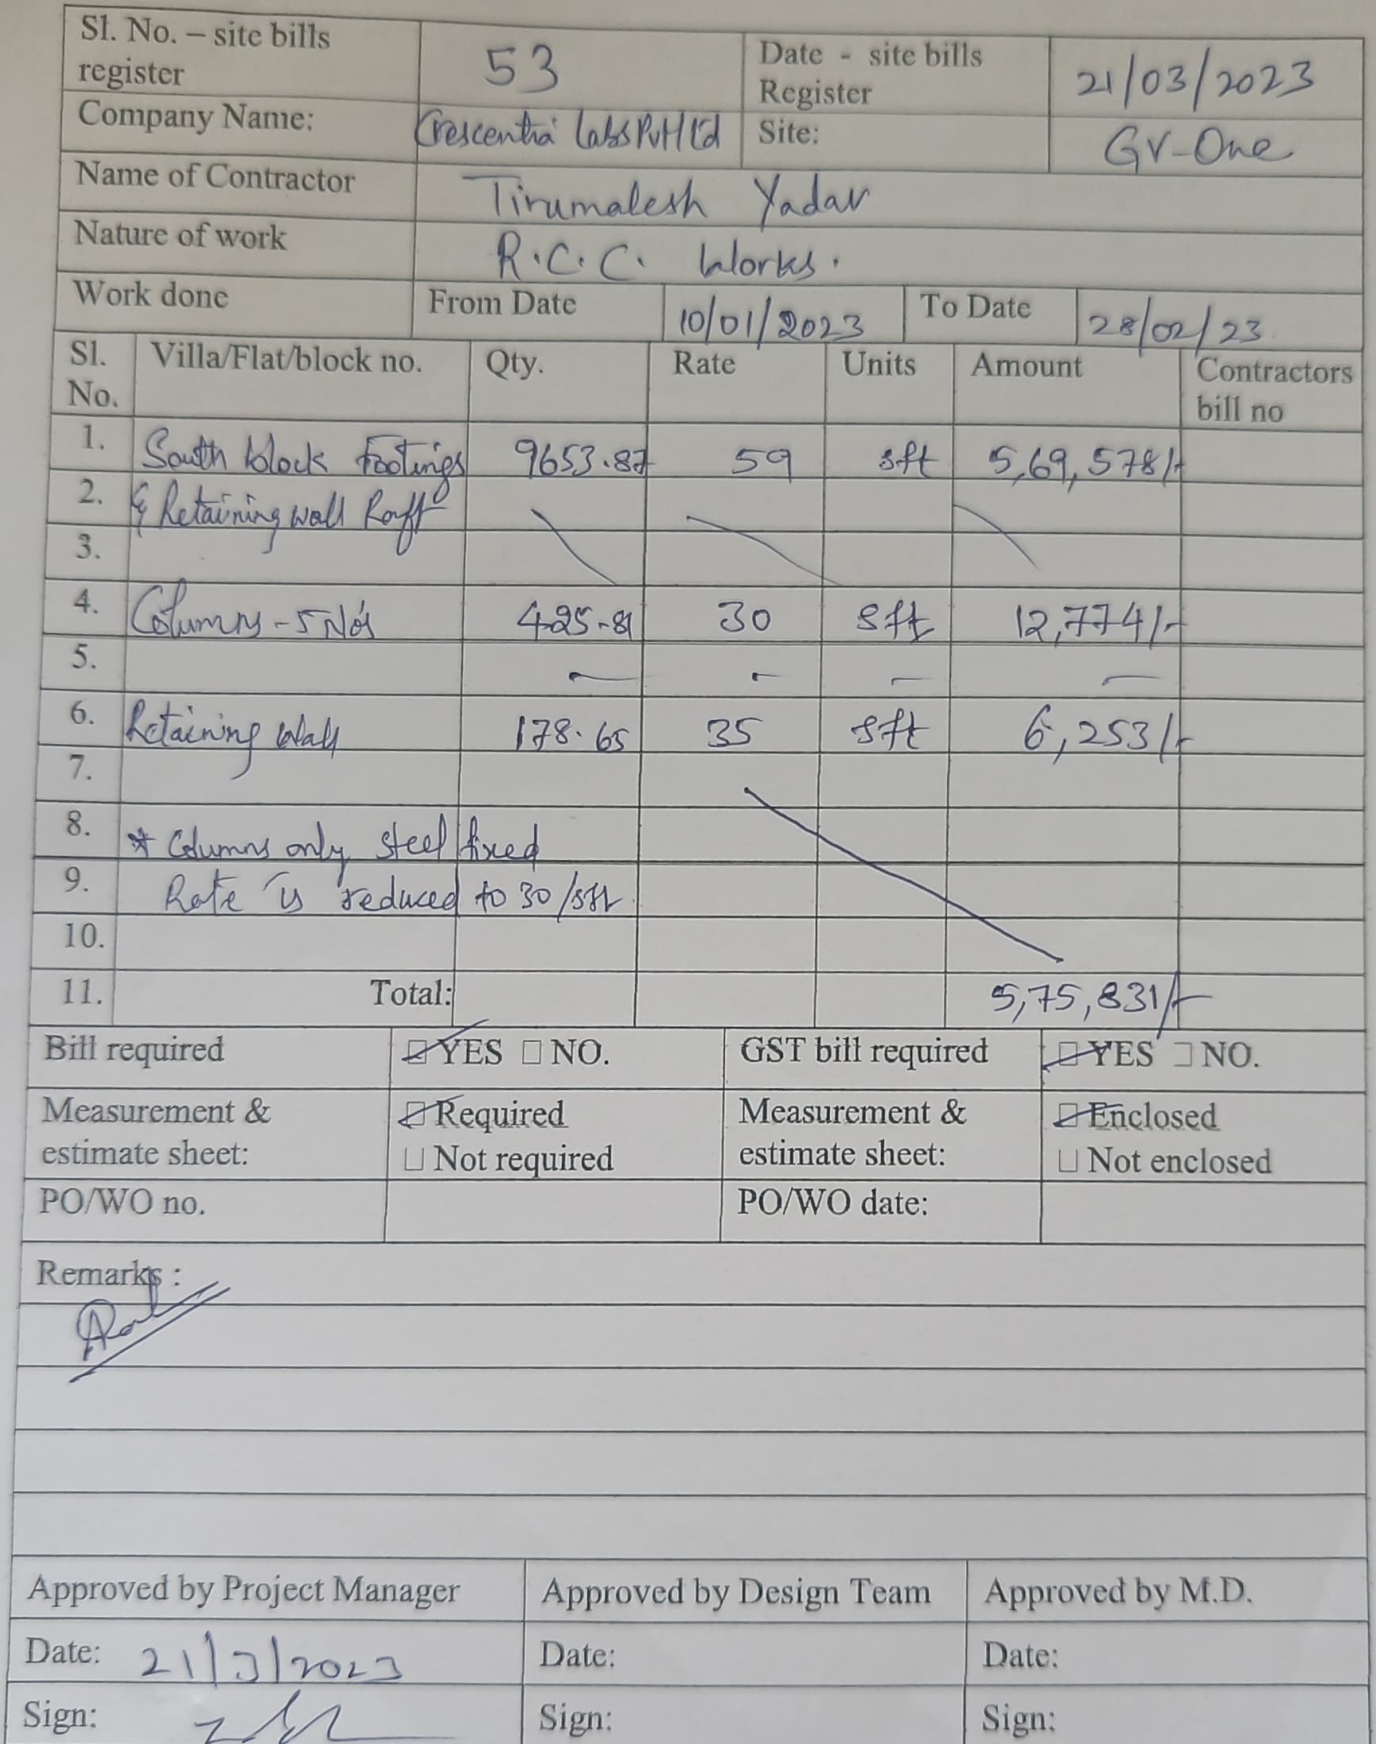 Sl. No. – site bills register 53 Date - site bills Register 21/03/2023
Company Name: Crescentia Labs Pvt Ltd Site: GV-One
Name of Contractor Tirumalesh Yadav
Nature of work R.C.C. Works.
Work done From Date 10/01/2023 To Date 28/02/23
Sl. No. Villa/Flat/block no. Qty. Rate Units Amount Contractors bill no
1. South block footings 9653.87 59 sft 5,69,578/-
2. & Retaining wall Raft
3.
4. Columns - 5 No's 425.81 30 sft 12,774/-
5. - - - -
6. Retaining Wall 178.65 35 sft 6,253/-
7.
8. * Columns only steel fixed
9. Rate is reduced to 30/sft.
10.
11. Total: 5,75,831/-
Bill required YES NO. GST bill required YES NO.
Measurement & estimate sheet: Required Not required Measurement & estimate sheet: Enclosed Not enclosed
PO/WO no. PO/WO date:
Remarks :
Approved by Project Manager Approved by Design Team Approved by M.D.
Date: 21/3/2023 Date: Date:
Sign: Sign: Sign: